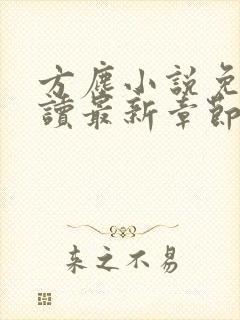 方塵小說免
讀最新章節
来之不易